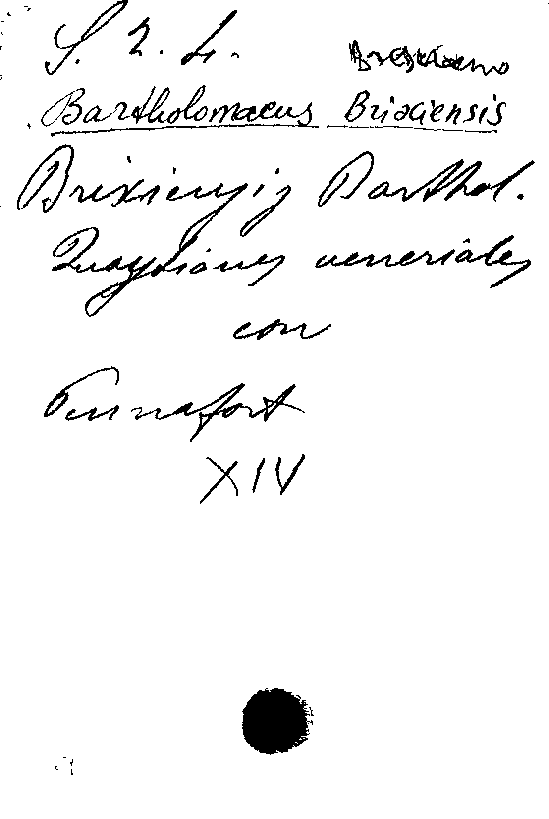 S. 2. 4.
Bartholomaeus Brixiensis
Brixiensis Barthol.
Quaestiones veneriales
con
Pennafort
XIV